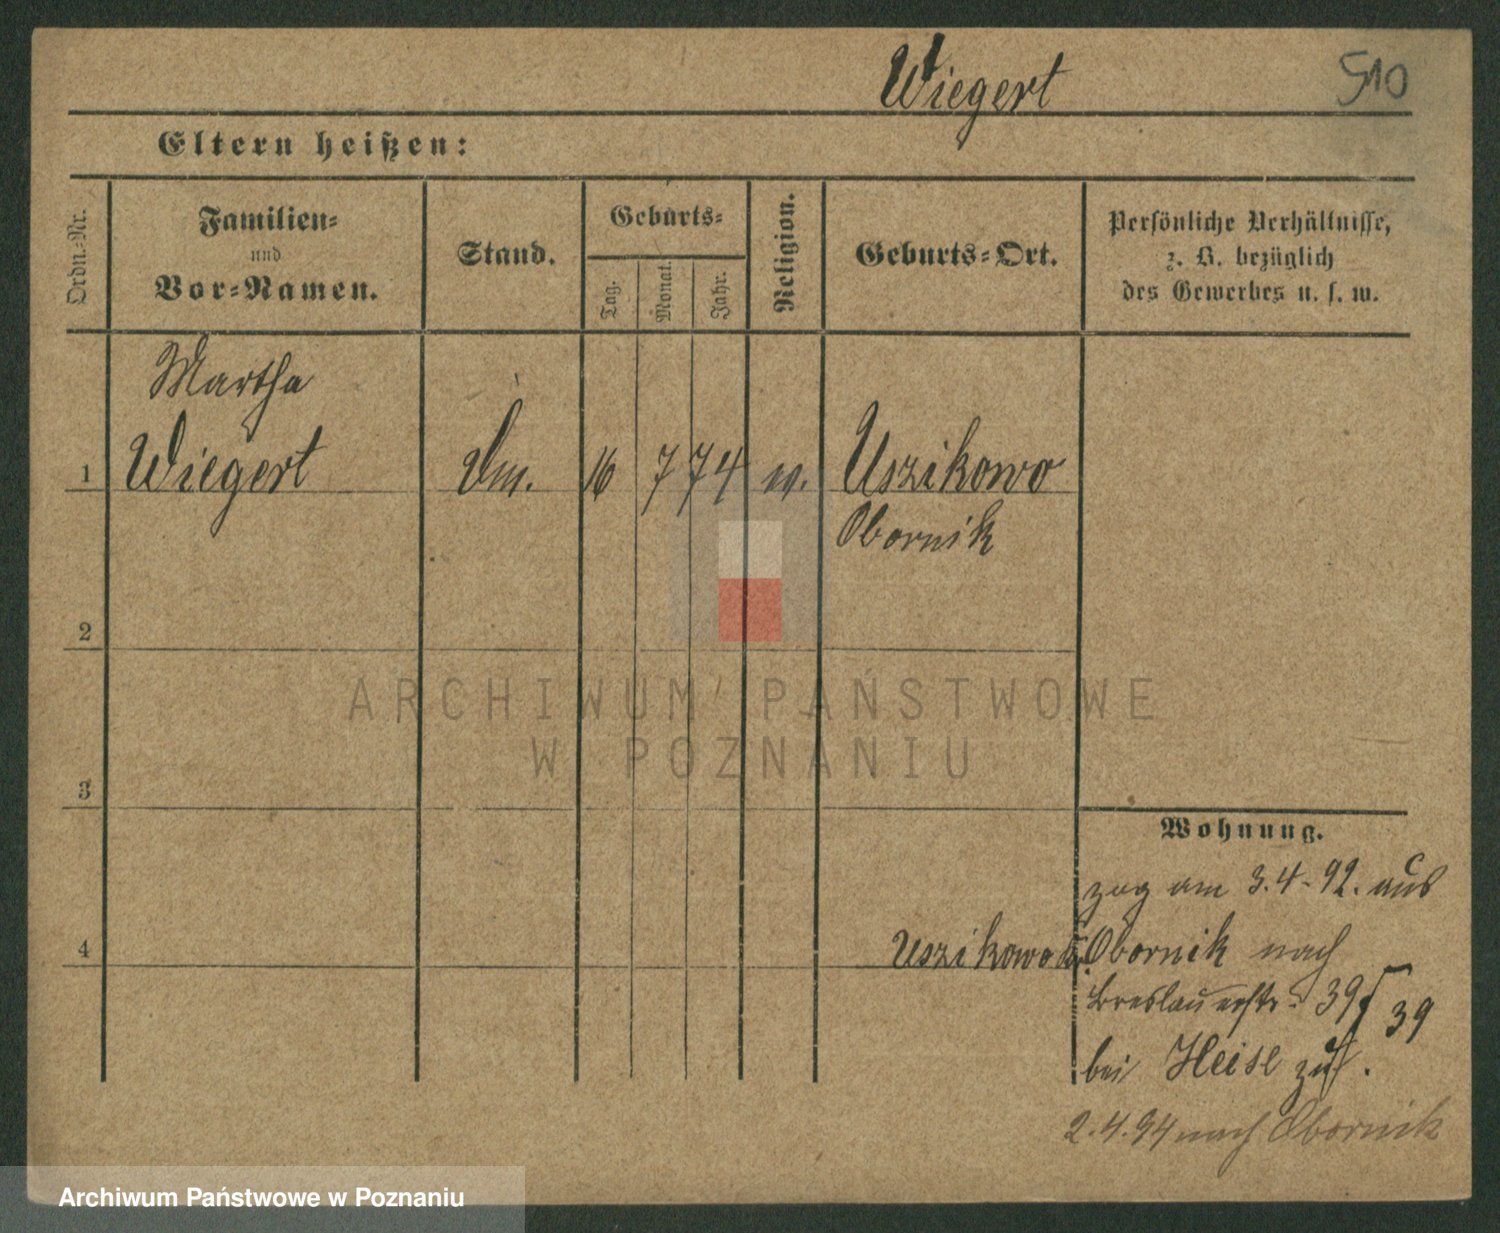 Wiegert
510
Eltern heißen:
Ordn.-Nr.
Familien-
und
Vor-Namen.
Stand.
Geburts-
Tag.
Monat.
Jahr.
Religion.
Geburts-Ort.
Persönliche Verhältnisse,
z. B. bezüglich
des Gewerbes u. s. w.
Martha
1 Wiegert 16 7 74 Uszikowo
Obornik
2
ARCHIWUM PAŃSTWOWE
W POZNANIU
3
Wohnung.
zog am 3.4.92. aus
4 Uszikowo Obornik nach
Breslauerstr. 39
39
bei Heise
2.4.94 nach Obornik
Archiwum Państwowe w Poznaniu